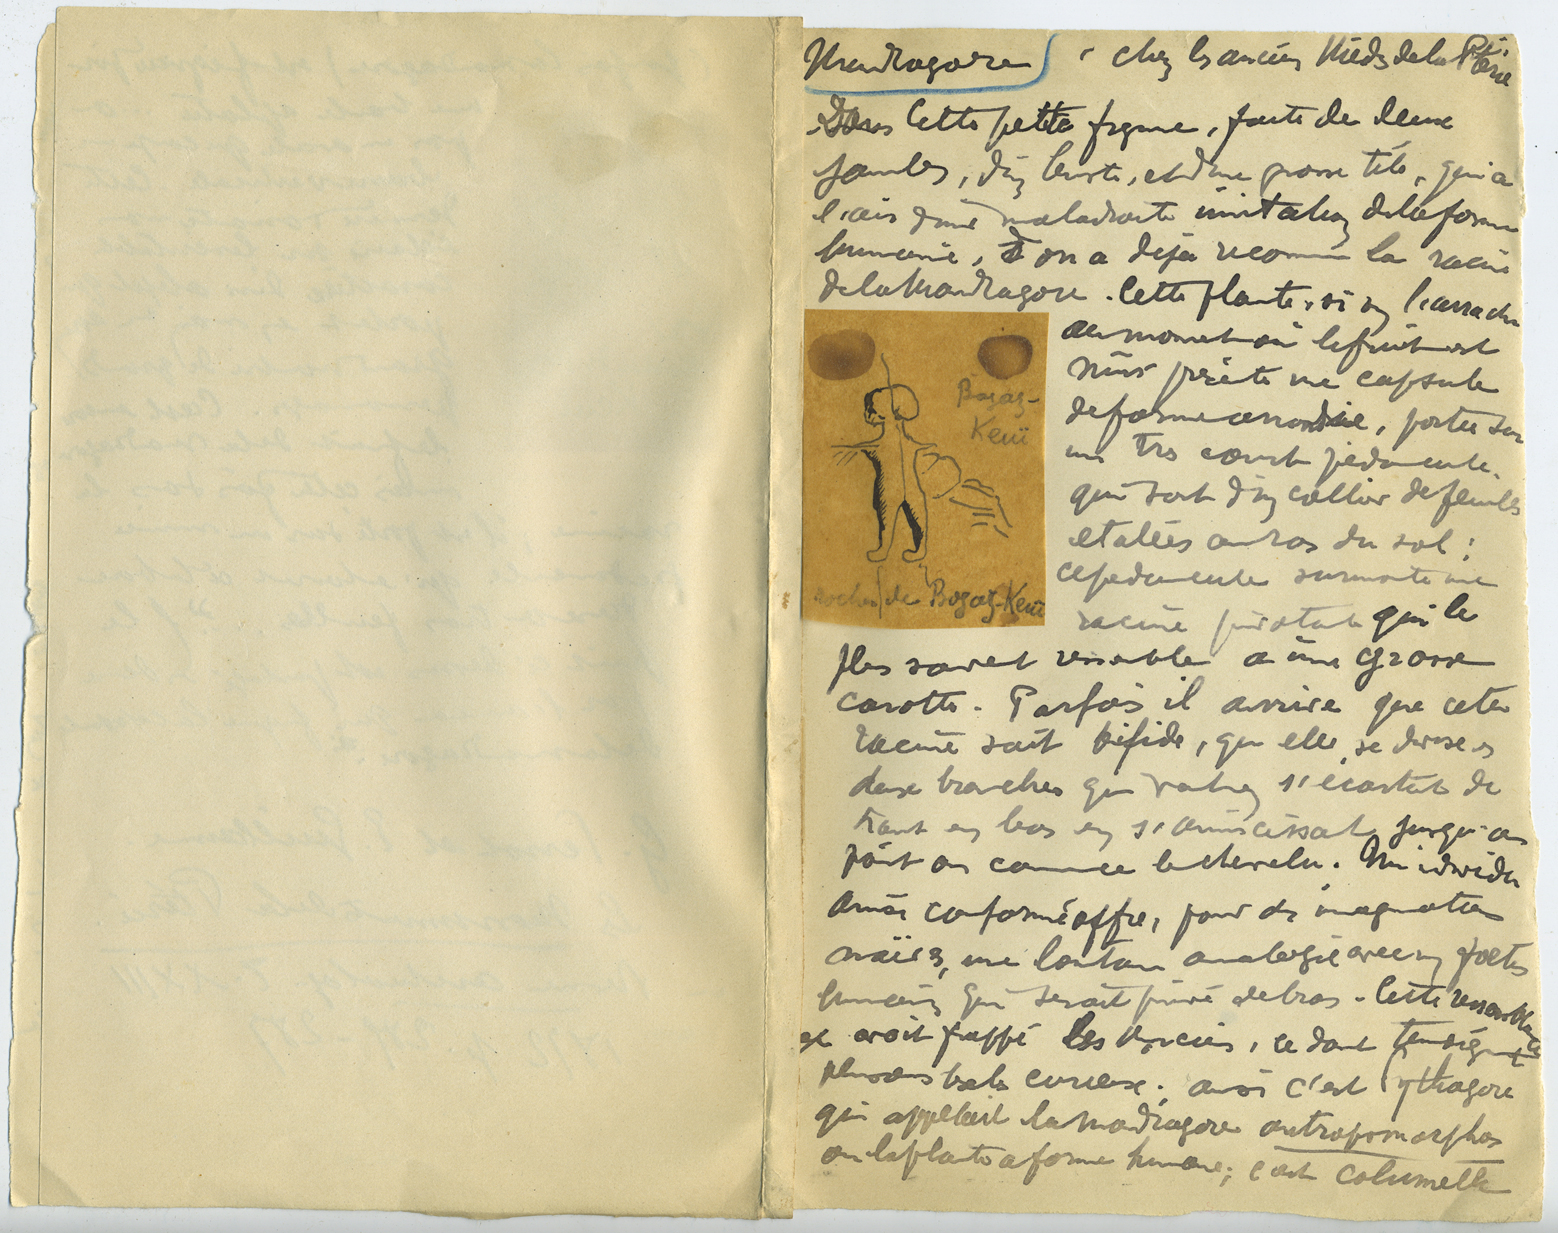 Mandragore : chez les anciens Mèdes de la Ptérie
Dans cette petite figure, faite de deux
jambes, d'un buste, et d'une grosse tête, qui a
l'air d'une maladroite imitation de la forme
humaine, on a déjà reconnu la racine
de la Mandragore. Cette plante, si on l'arrache
au moment où le fruit est
mûr présente une capsule
de forme arrondie, portée sur
un très court pédoncule,
qui sort d'un collier de feuilles
étalées au ras du sol ;
ce pédoncule surmonte une
racine pivotante qui le
plus souvent ressemble à une grosse
carotte. Parfois il arrive que cette
racine soit bifide, qu'elle se divise en
deux branches qui vont en s'écartant de
haut en bas en s'amincissant jusqu'au
point où commence le chevelu. Un individu
ainsi conformé offre, pour des imaginations
naïves, une lointaine analogie avec un foetus
humain qui serait privé de bras. Cette ressemblance
avait frappé les Anciens, ce dont témoignent
plusieurs textes curieux ; ainsi c'est Pythagore
qui appelait la mandragore antropomorphos
ou la plante à forme humaine ; c'est Columelle
Bogaz-
Keuï
rocher de Bogaz-Keuï